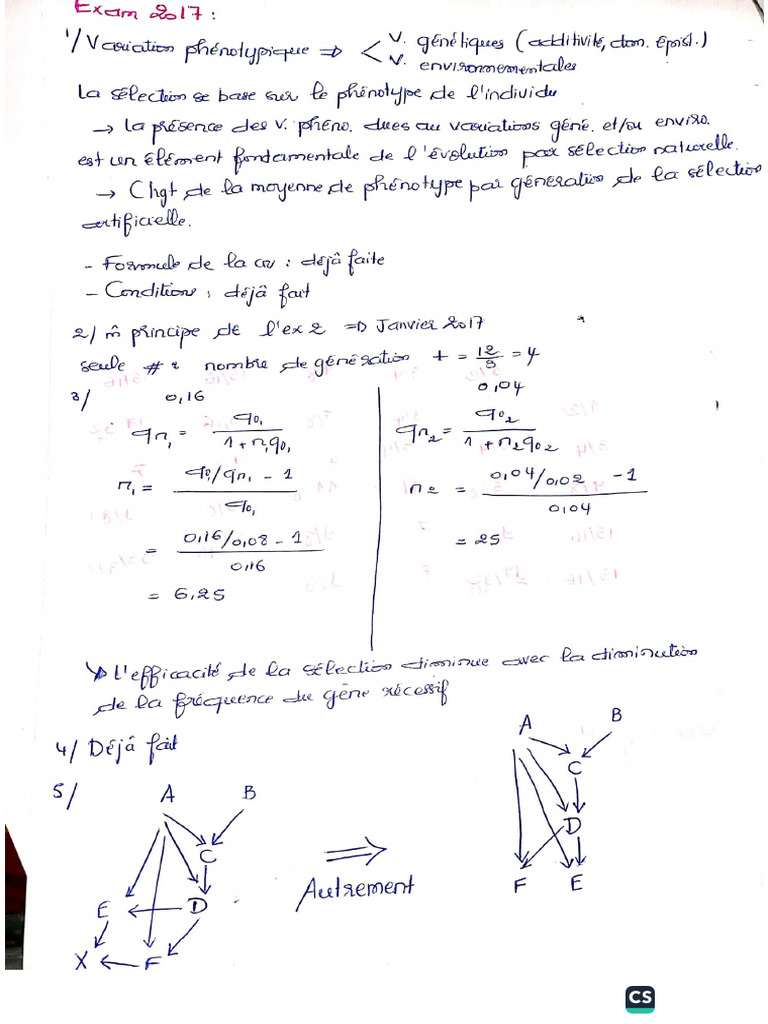 Exam 2017 :
1/ Variation phénotypique => < V. génétiques (additivité, dom. épist.)
V. environnementales
La sélection se base sur le phénotype de l'individu
→ la présence des V. phéno. dues au variations géné. et/ou enviro.
est un élément fondamentale de l'évolution par sélection naturelle.
→ Chgt de la moyenne de phénotype par génération de la sélection
artificielle.
- Formule de la : déjà faite
- Conditions : déjà fait
2/ m̂ principe de l'ex 2 => Janvier 2017
seule # nombre de génération t = 12/3 = 4
3/ 0,16
qn1 = q01 / 1 + n1q01
n1 = q0/qn1 - 1 / q01
= 0,16/0,08 - 1 / 0,16
= 6,25
0,04
qn2 = q02 / 1 + n2q02
n2 = 0,04/0,02 - 1 / 0,04
= 25
L'efficacité de la sélection diminue avec la diminution
de la fréquence du gène récessif
4/ Déjà fait
5/
A B
C
E D
X F
=>
Autrement
A B
C
D
F E
CS